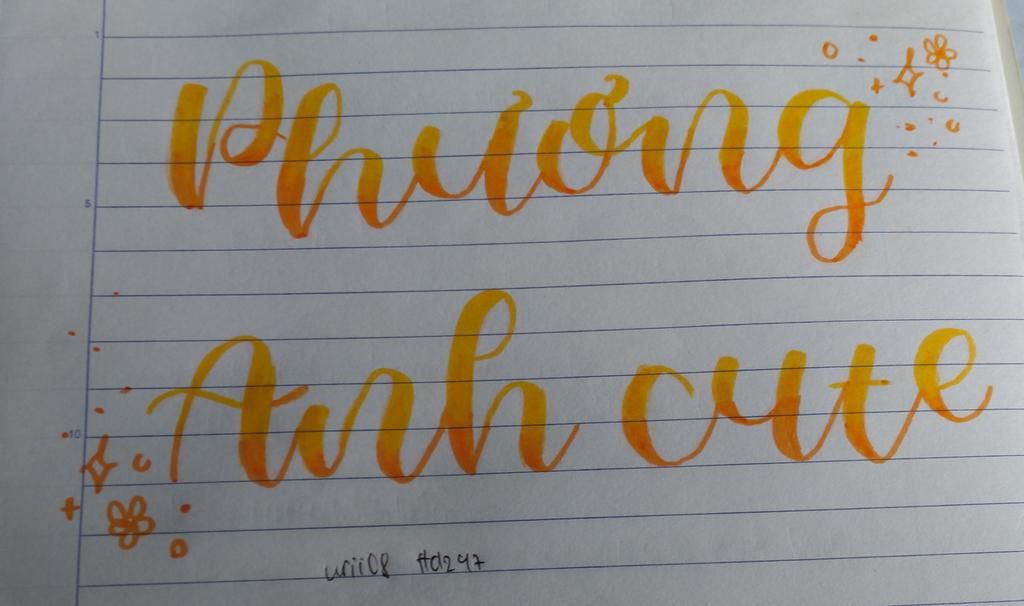 1
Phương
5
Anh cute
10
urii08 ftd297